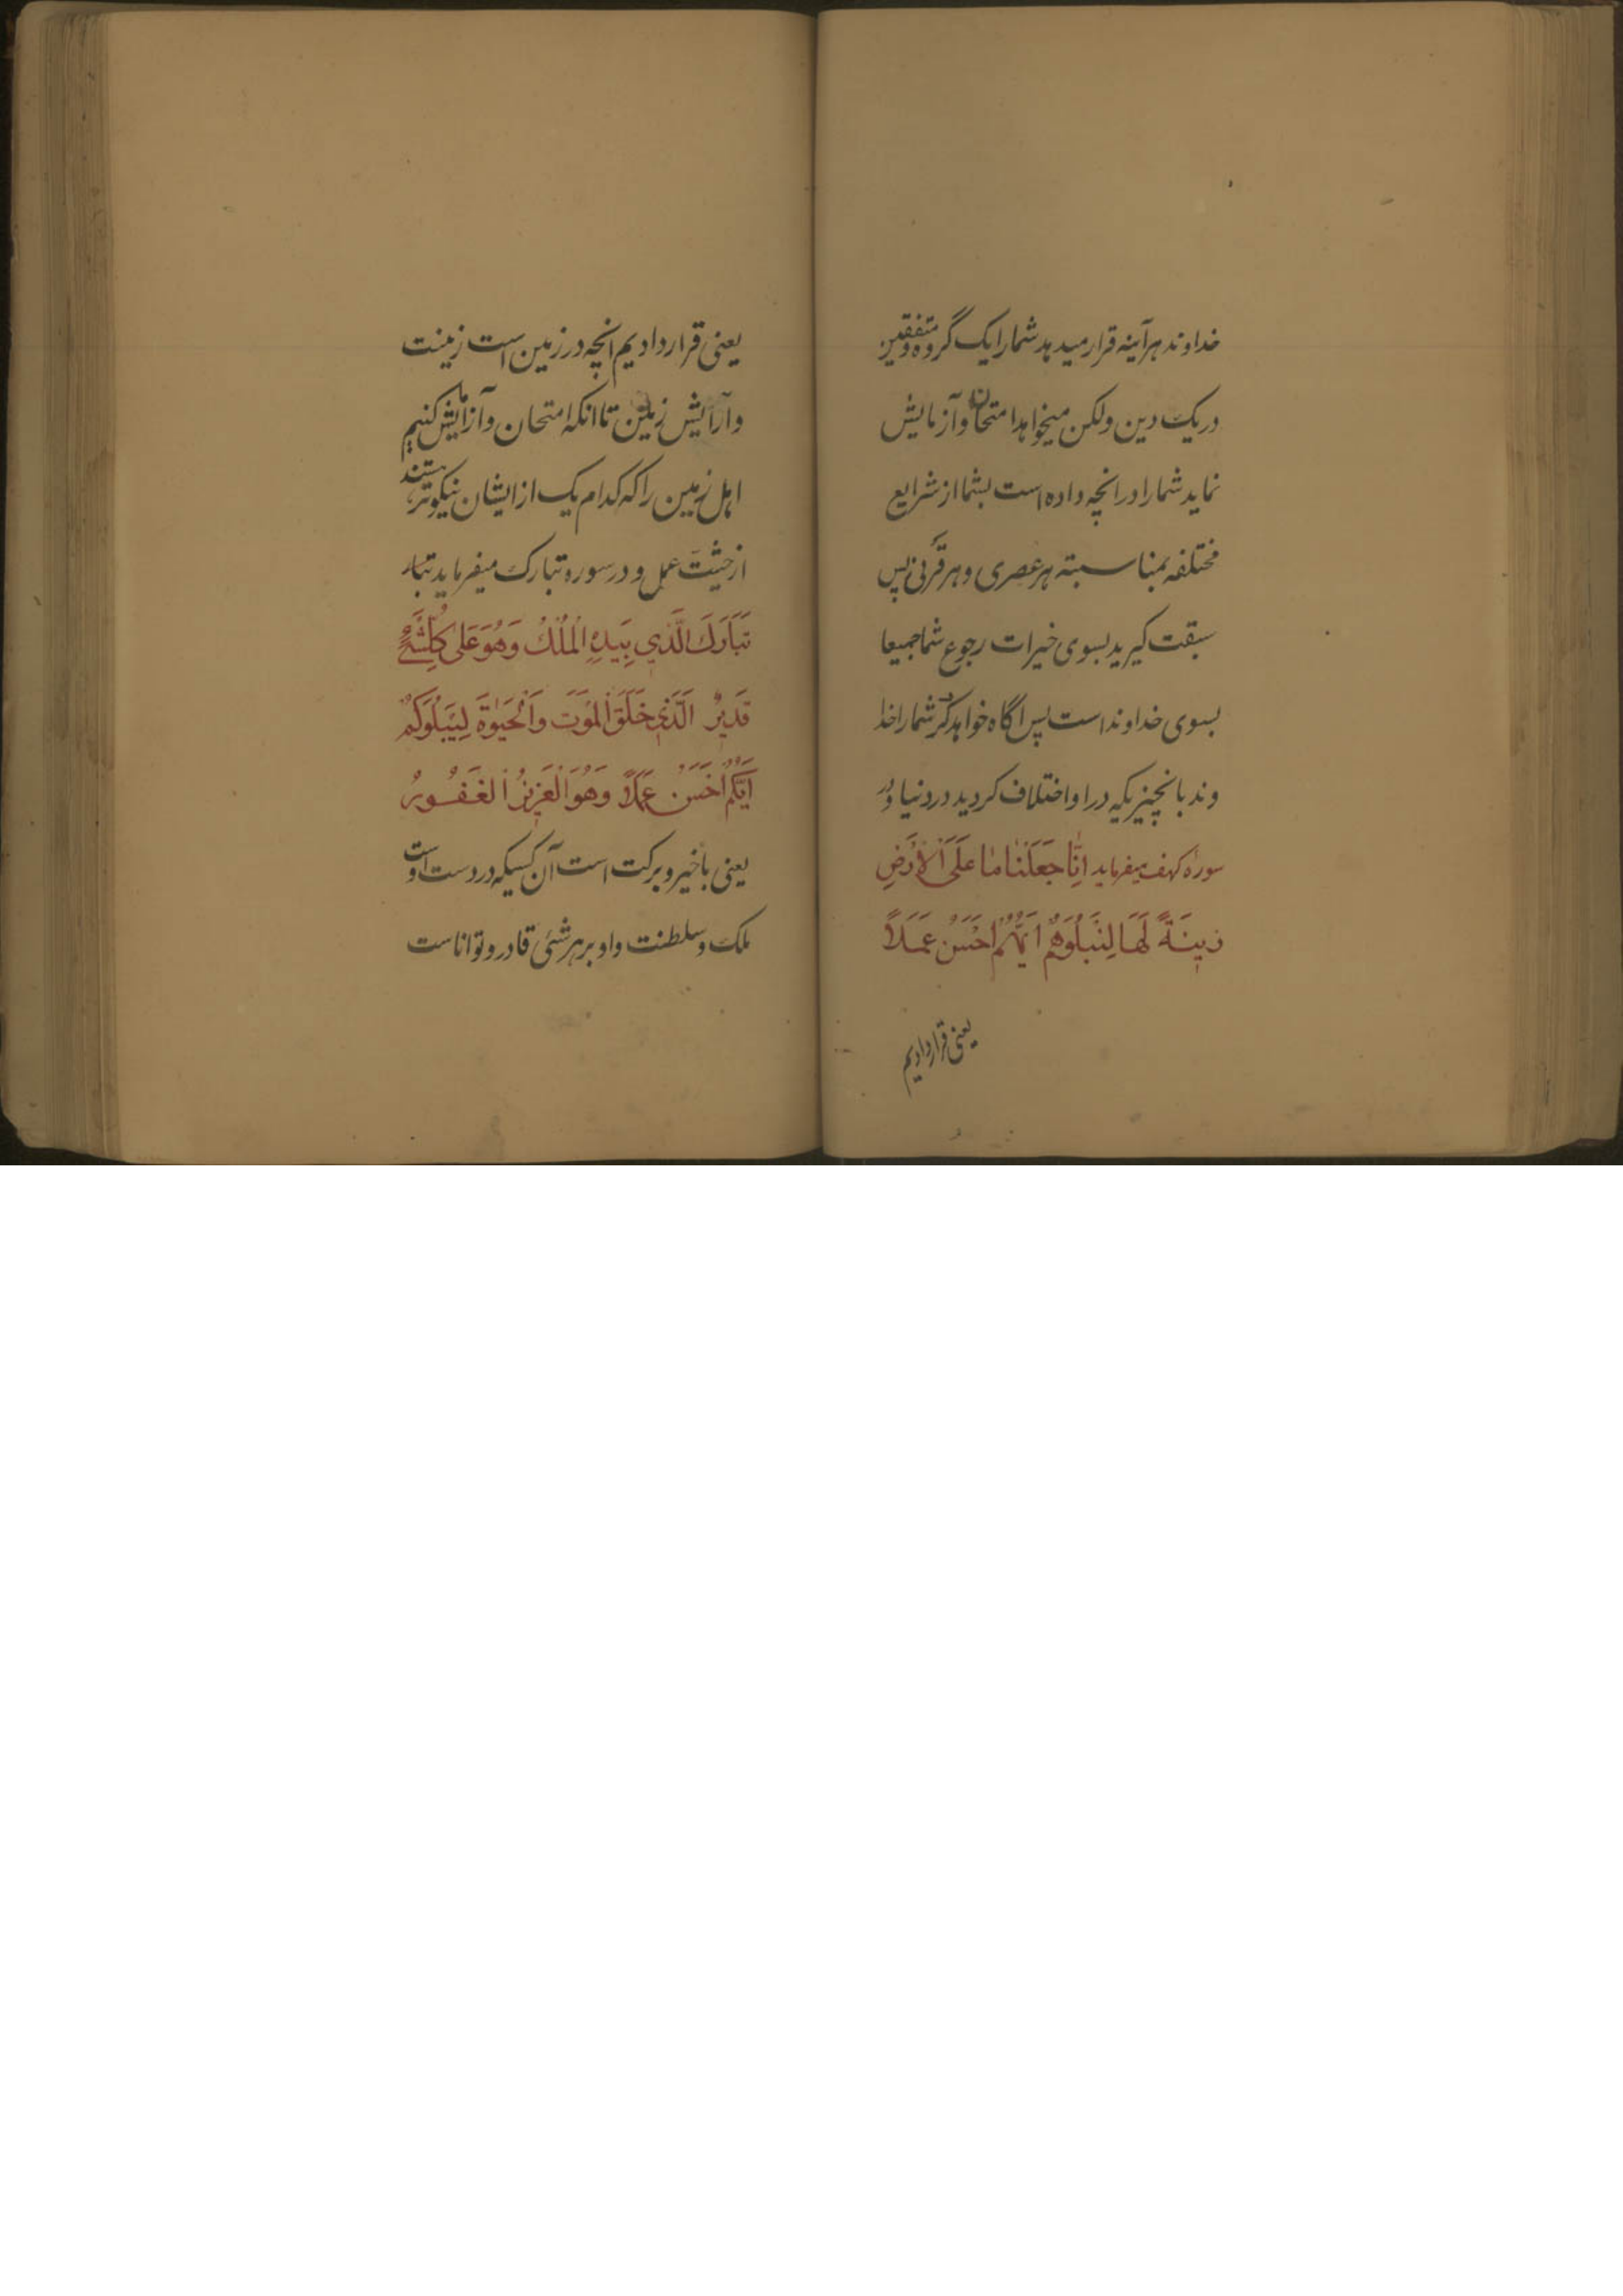 خداوند هرآینه قرار میدهد شما را یک گروه و متفقین
در یک دین ولکن میخواهد امتحان و آزمایش
نماید شما را در انچه داده است بشما از شرایع
مختلفه بمناسبته هر عصری و هر قرنی پس
سبقت گیرید بسوی خیرات رجوع شما جمیعا
بسوی خداوند است پس اگاه خواهد کرد شما را خدا
وند بانچیزیکه در او اختلاف کردید در دنیا و در
سوره کهف میفرماید اِنّا جَعَلنٰا مٰا عَلَی الاَرَضِ
زینَةً لَهَا لِنَبلُوَهُم اَیُّهُم اَحسَنُ عَمَلاً
یعنی قرار دادیم
یعنی قرار دادیم انچه در زمین است زینت
و آرایش زمین تا انکه امتحان و آزمایش کنیم
اهل زمین را که کدام یک از ایشان نیکوتر هستند
از حیثیت عمل و در سوره تبارک میفرماید تبار
تَبَارَكَ الَّذي بِیَدِهِ المُلكُ وَهُوَ عَلیٰ كُلِّ شَیْءٍ
قَدیرٌ الَّذي خَلَقَ المَوتَ وَالحَیٰوةَ لِیَبلُوَكُم
اَیُّكُم اَحسَنُ عَمَلاً وَهُوَ العَزیزُ الغَفُورُ
یعنی با خیر و برکت است آن کسیکه در دست او است
ملک و سلطنت و او بر هر شئی قادر و توانا است